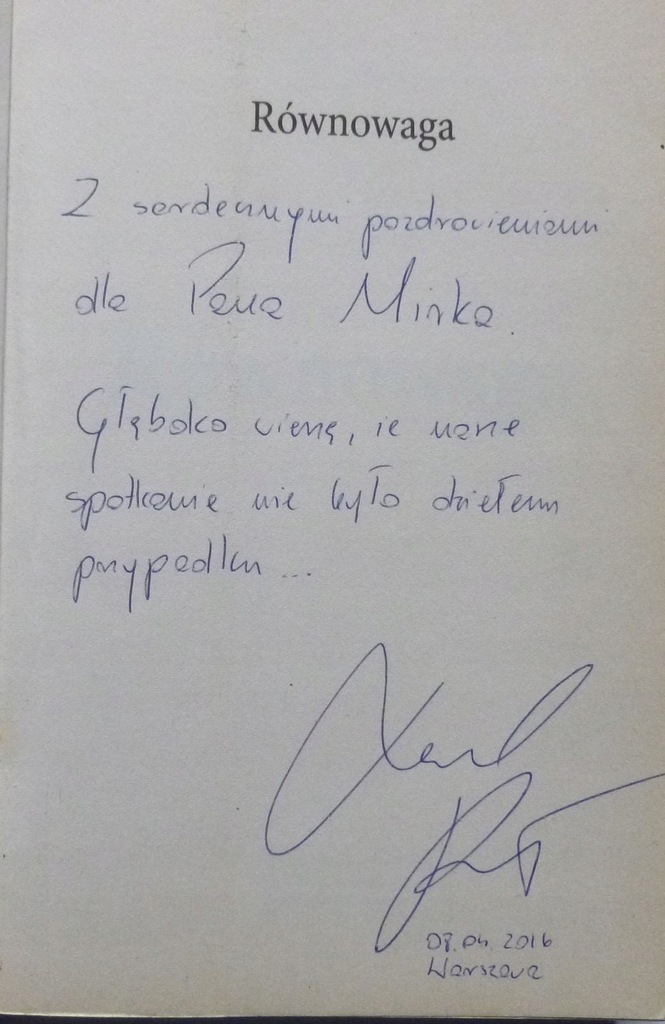 Równowaga
Z serdecznymi pozdrowieniami
dla Pana Mirka.
Głęboko wierzę, że nasze
spotkanie nie było dziełem
przypadku...
08.04.2016
Warszawa